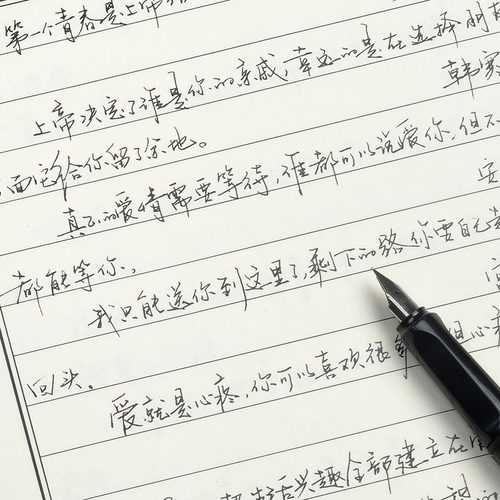 第一个青春是上帝
上帝决定了谁是你的亲戚，幸运的是在选择朋
韩寒
面它给你留了余地。
真正的爱情需要等待，谁都可以说爱你，但不
安
都能等你。
我只能送你到这里了，剩下的路你要自己走
回头。
爱就是心疼，你可以喜欢很多 但心疼
生活兴趣全部建立在